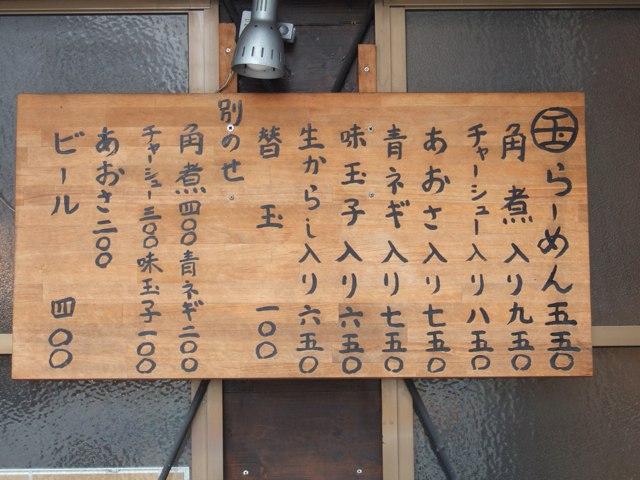 玉らーめん五五〇
角煮入り九五〇
チャーシュー入り八五〇
あおさ入り七五〇
青ネギ入り七五〇
味玉子入り六五〇
生からし入り六五〇
替玉一〇〇
別のせ
角煮四〇〇青ネギ二〇〇
チャーシュー三〇〇味玉子一〇〇
あおさ二〇〇
ビール四〇〇